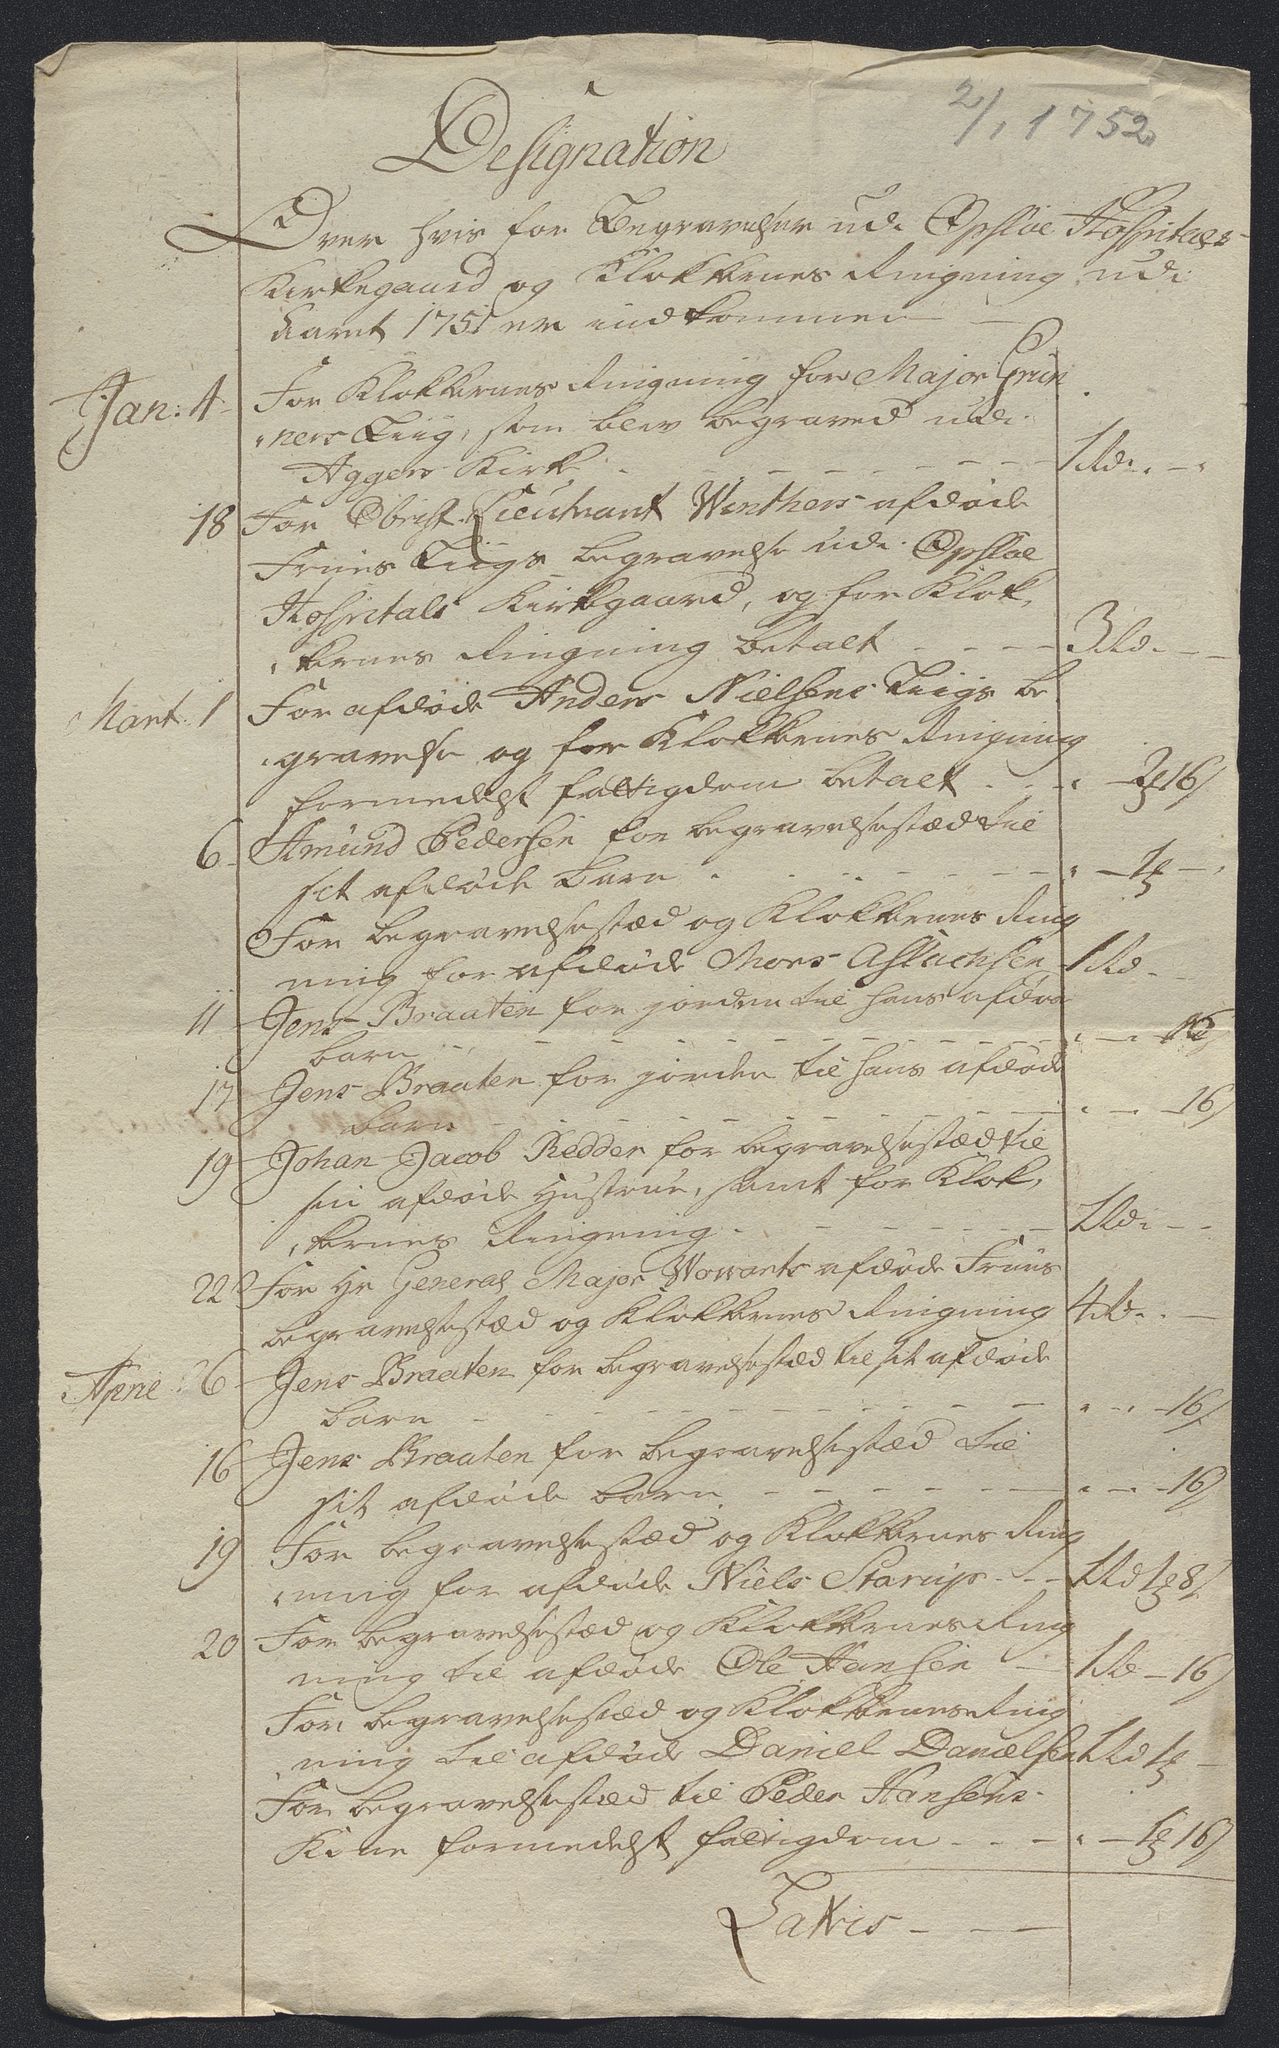 2/1 1752
Designation
Over hvis for Begravelser udi Opsloe Hospitals
Kirkegaard og Klokkernes Ringning udi
Aaret 1751 er indkommen
Jan: 4 For Klokkernes Ringning for Major Grün
ners Liig, som blev begraved udi
Aggers Kirke - - - 1 Rd. - -
18 For Obrist Lieutnant Winthers afdøde
Frues Liigs begravelse udi Opsloe
Hospitals Kirkegaard, og for Klok,
kernes Ringning betalt - - - 3 Rd. - -
Mart: 1 For afdøde Anders Nielsens Liigs be
gravelse og for Klokkernes Ringning
formedelst fattigdom betalt - - - 2 16 s
6 Amund Pedersen for begravelsestæd til
sit afdøde barn - - - 1 -
For begravelsestæd og Klokkernes Ring
ning for afdøde Mons Aslachsen 1 Rd -
11 Jens Braaten for jorden til hans afdøde
barn - - -
17 Jens Braaten for jorden til hans afdøde
barn - - - 16 s
19 Johan Jacob Redder for begravelsestæd til
sin afdøde Hustrue, samt for Klok,
kernes Ringning - - - 1 Rd. - -
22 For Hr General Major afdøde Frues
begravelsestæd og Klokkernes Ringning 4 Rd. -
April 6 Jens Braaten for begravelsestæd til sit afdøde
barn - - - 16 s
16 Jens Braaten for begravelsestæd til
sit afdøde barn - - - 16 s
19 For begravelsestæd og Klokkernes Ring
ning for afdøde Niels Starup - - 1 Rd 1 8 s
20 For begravelsestæd og Klokkernes Ring
ning til afdøde Ole Hansen - 1 Rd - 16 s
For begravelsestæd og Klokkernes Ring
ning til afdøde Daniel Danielsen 1 Rd 1 -
For begravelsestæd til Peder Hansens
Kone formedelst fattigdom - - - 1 16 s
Latus - - -